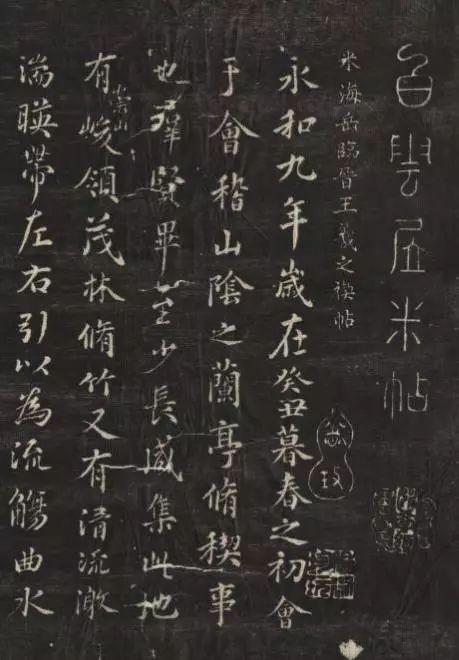 白雲居米帖
米海岳臨晉王羲之禊帖
永和九年歲在癸丑暮春之初會
于會稽山陰之蘭亭脩稧事
也群賢畢至少長咸集此地
有崇山峻領茂林脩竹又有清流激
湍暎帶左右引以為流觴曲水